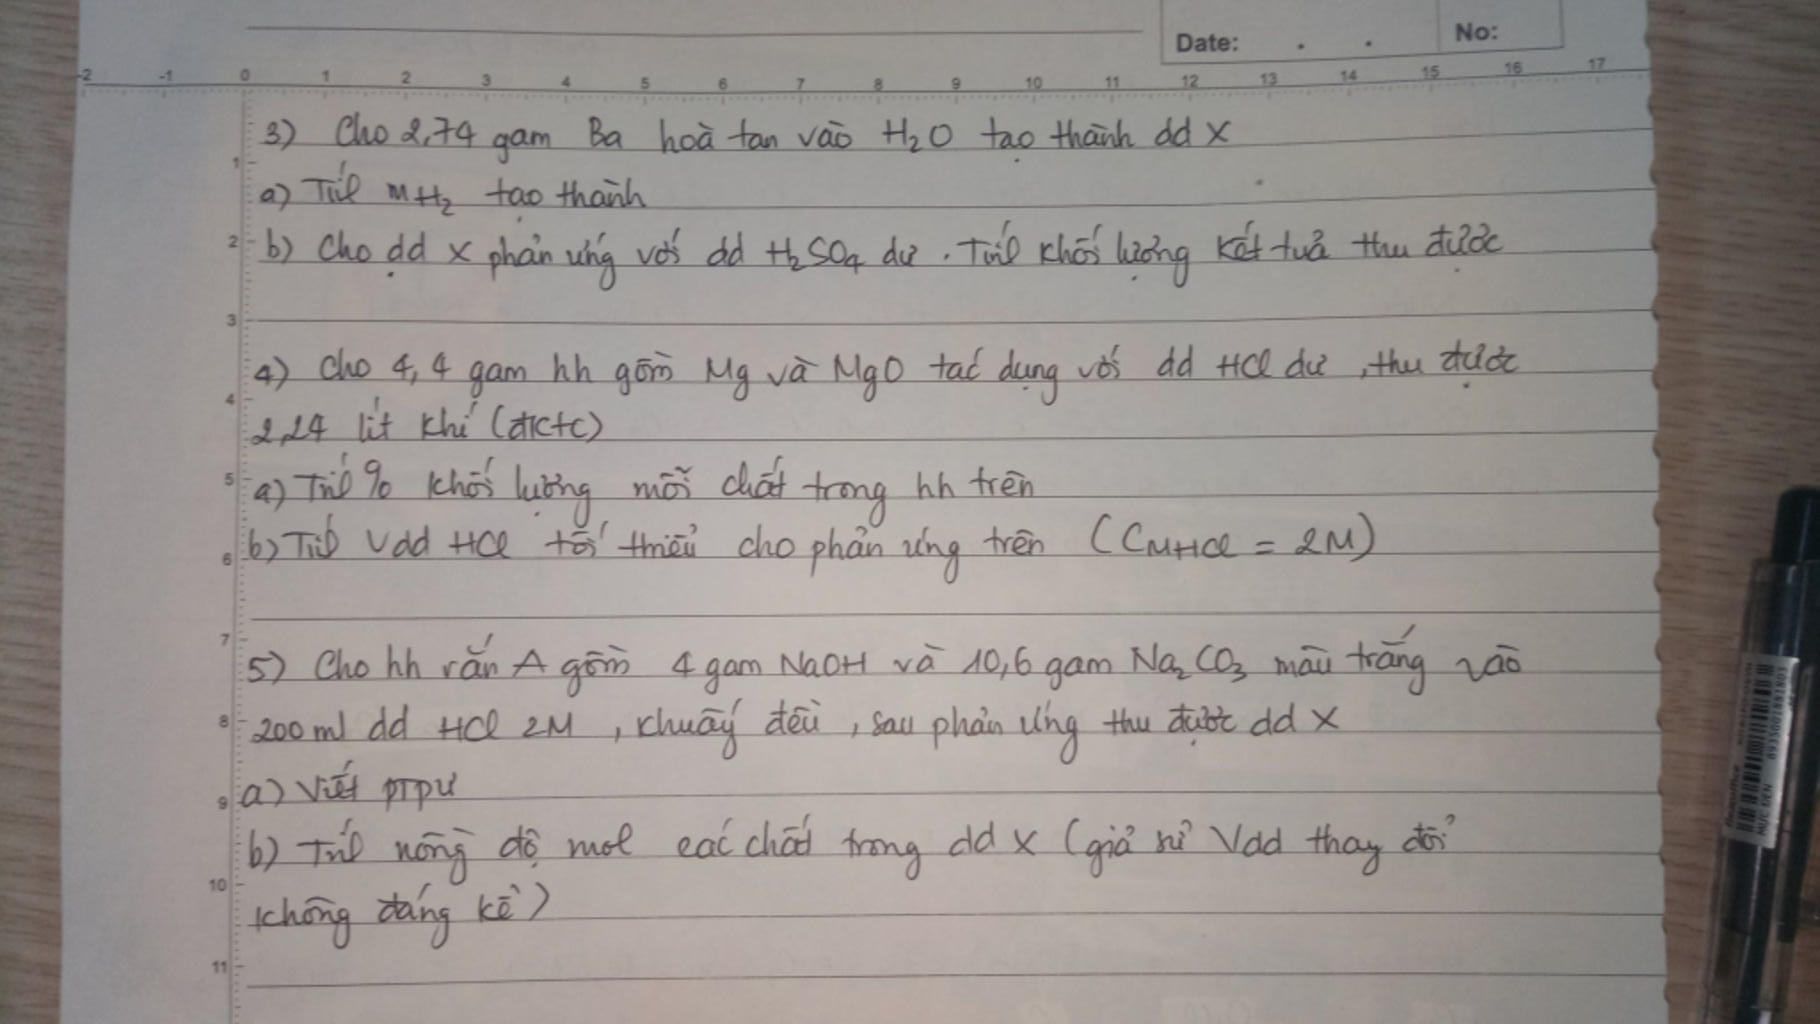 Date: . . No:
-2 -1 0 1 2 3 4 5 6 7 8 9 10 11 12 13 14 15 16 17
3) Cho 2,74 gam Ba hoà tan vào H₂O tạo thành dd X
1
a) Tính mH₂ tạo thành
2
b) Cho dd X phản ứng với dd H₂SO₄ dư. Tính khối lượng kết tủa thu được
3
4) Cho 4,4 gam hh gồm Mg và MgO tác dụng với dd HCl dư, thu được
4
2,24 lít khí (đktc)
5
a) Tính % khối lượng mỗi chất trong hh trên
b) Tính Vdd HCl tối thiểu cho phản ứng trên (CMHCl = 2M)
6
7
5) Cho hh rắn A gồm 4 gam NaOH và 10,6 gam Na₂CO₃ màu trắng vào
8
200 ml dd HCl 2M, khuấy đều, sau phản ứng thu được dd X
9
a) Viết PTPƯ
b) Tính nồng độ mol các chất trong dd X (giả sử Vdd thay đổi
10
không đáng kể)
11